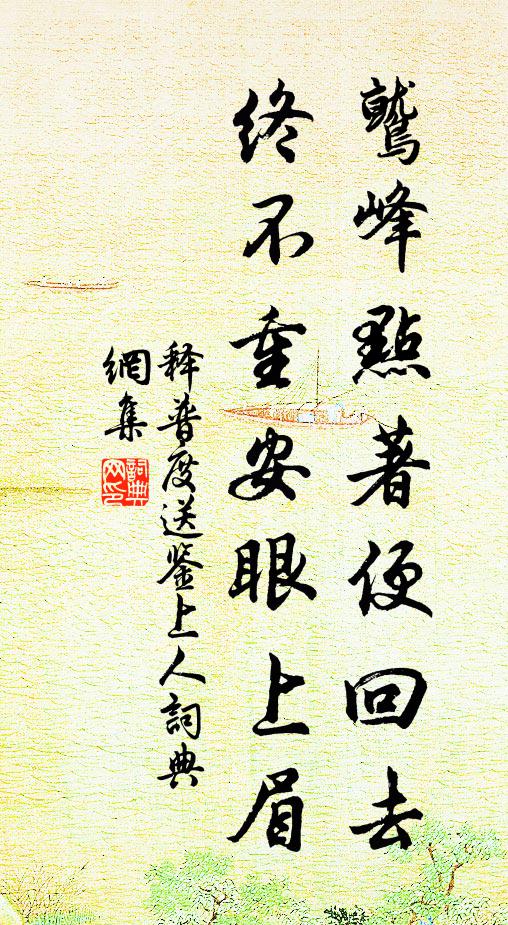 鷲峰點著便回去
終不重安眼上眉
释普度送鉴上人詞典
網集
詞典
网印